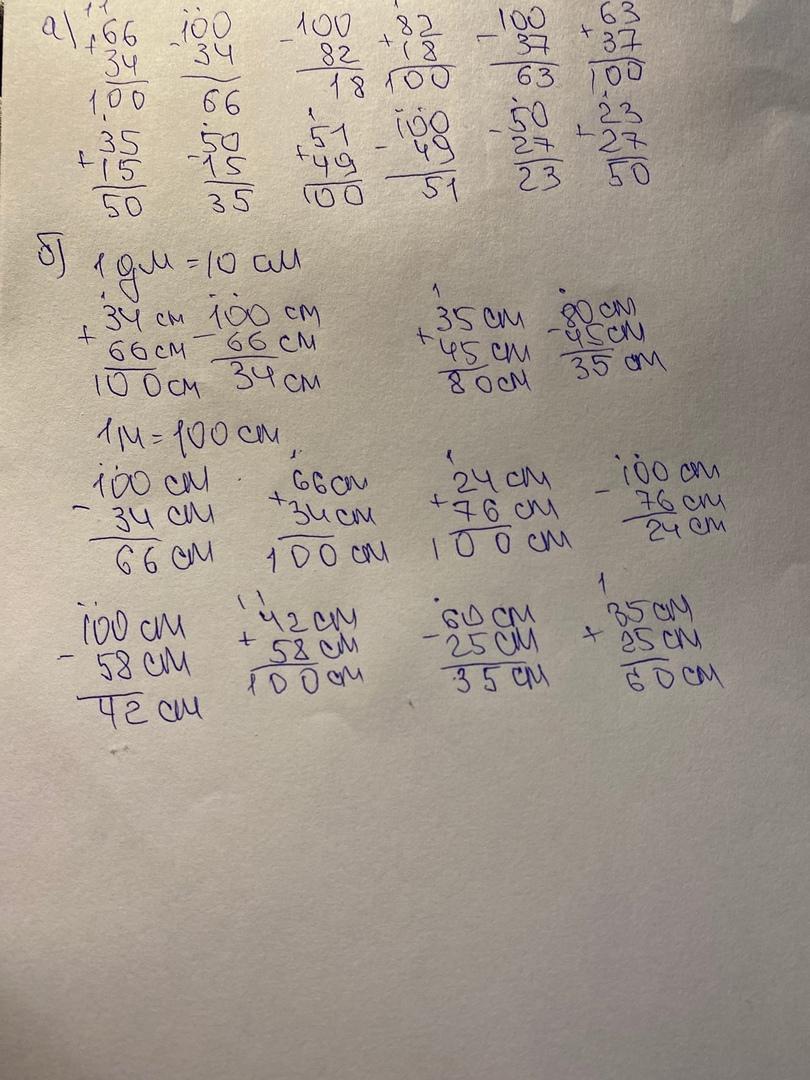 а) +66 -100 -100 +82 -100 +63
34 34 82 18 37 37
100 66 18 100 63 100
+35 -50 +51 -100 -50 +23
15 15 49 49 27 27
50 35 100 51 23 50
б) 1 дм = 10 см
+34 см -100 см +35 см -80 см
66 см 66 см 45 см 45 см
100 см 34 см 80 см 35 см
1 м = 100 см
-100 см +66 см +24 см -100 см
34 см 34 см 76 см 76 см
66 см 100 см 100 см 24 см
-100 см +42 см -60 см +35 см
58 см 58 см 25 см 25 см
42 см 100 см 35 см 60 см